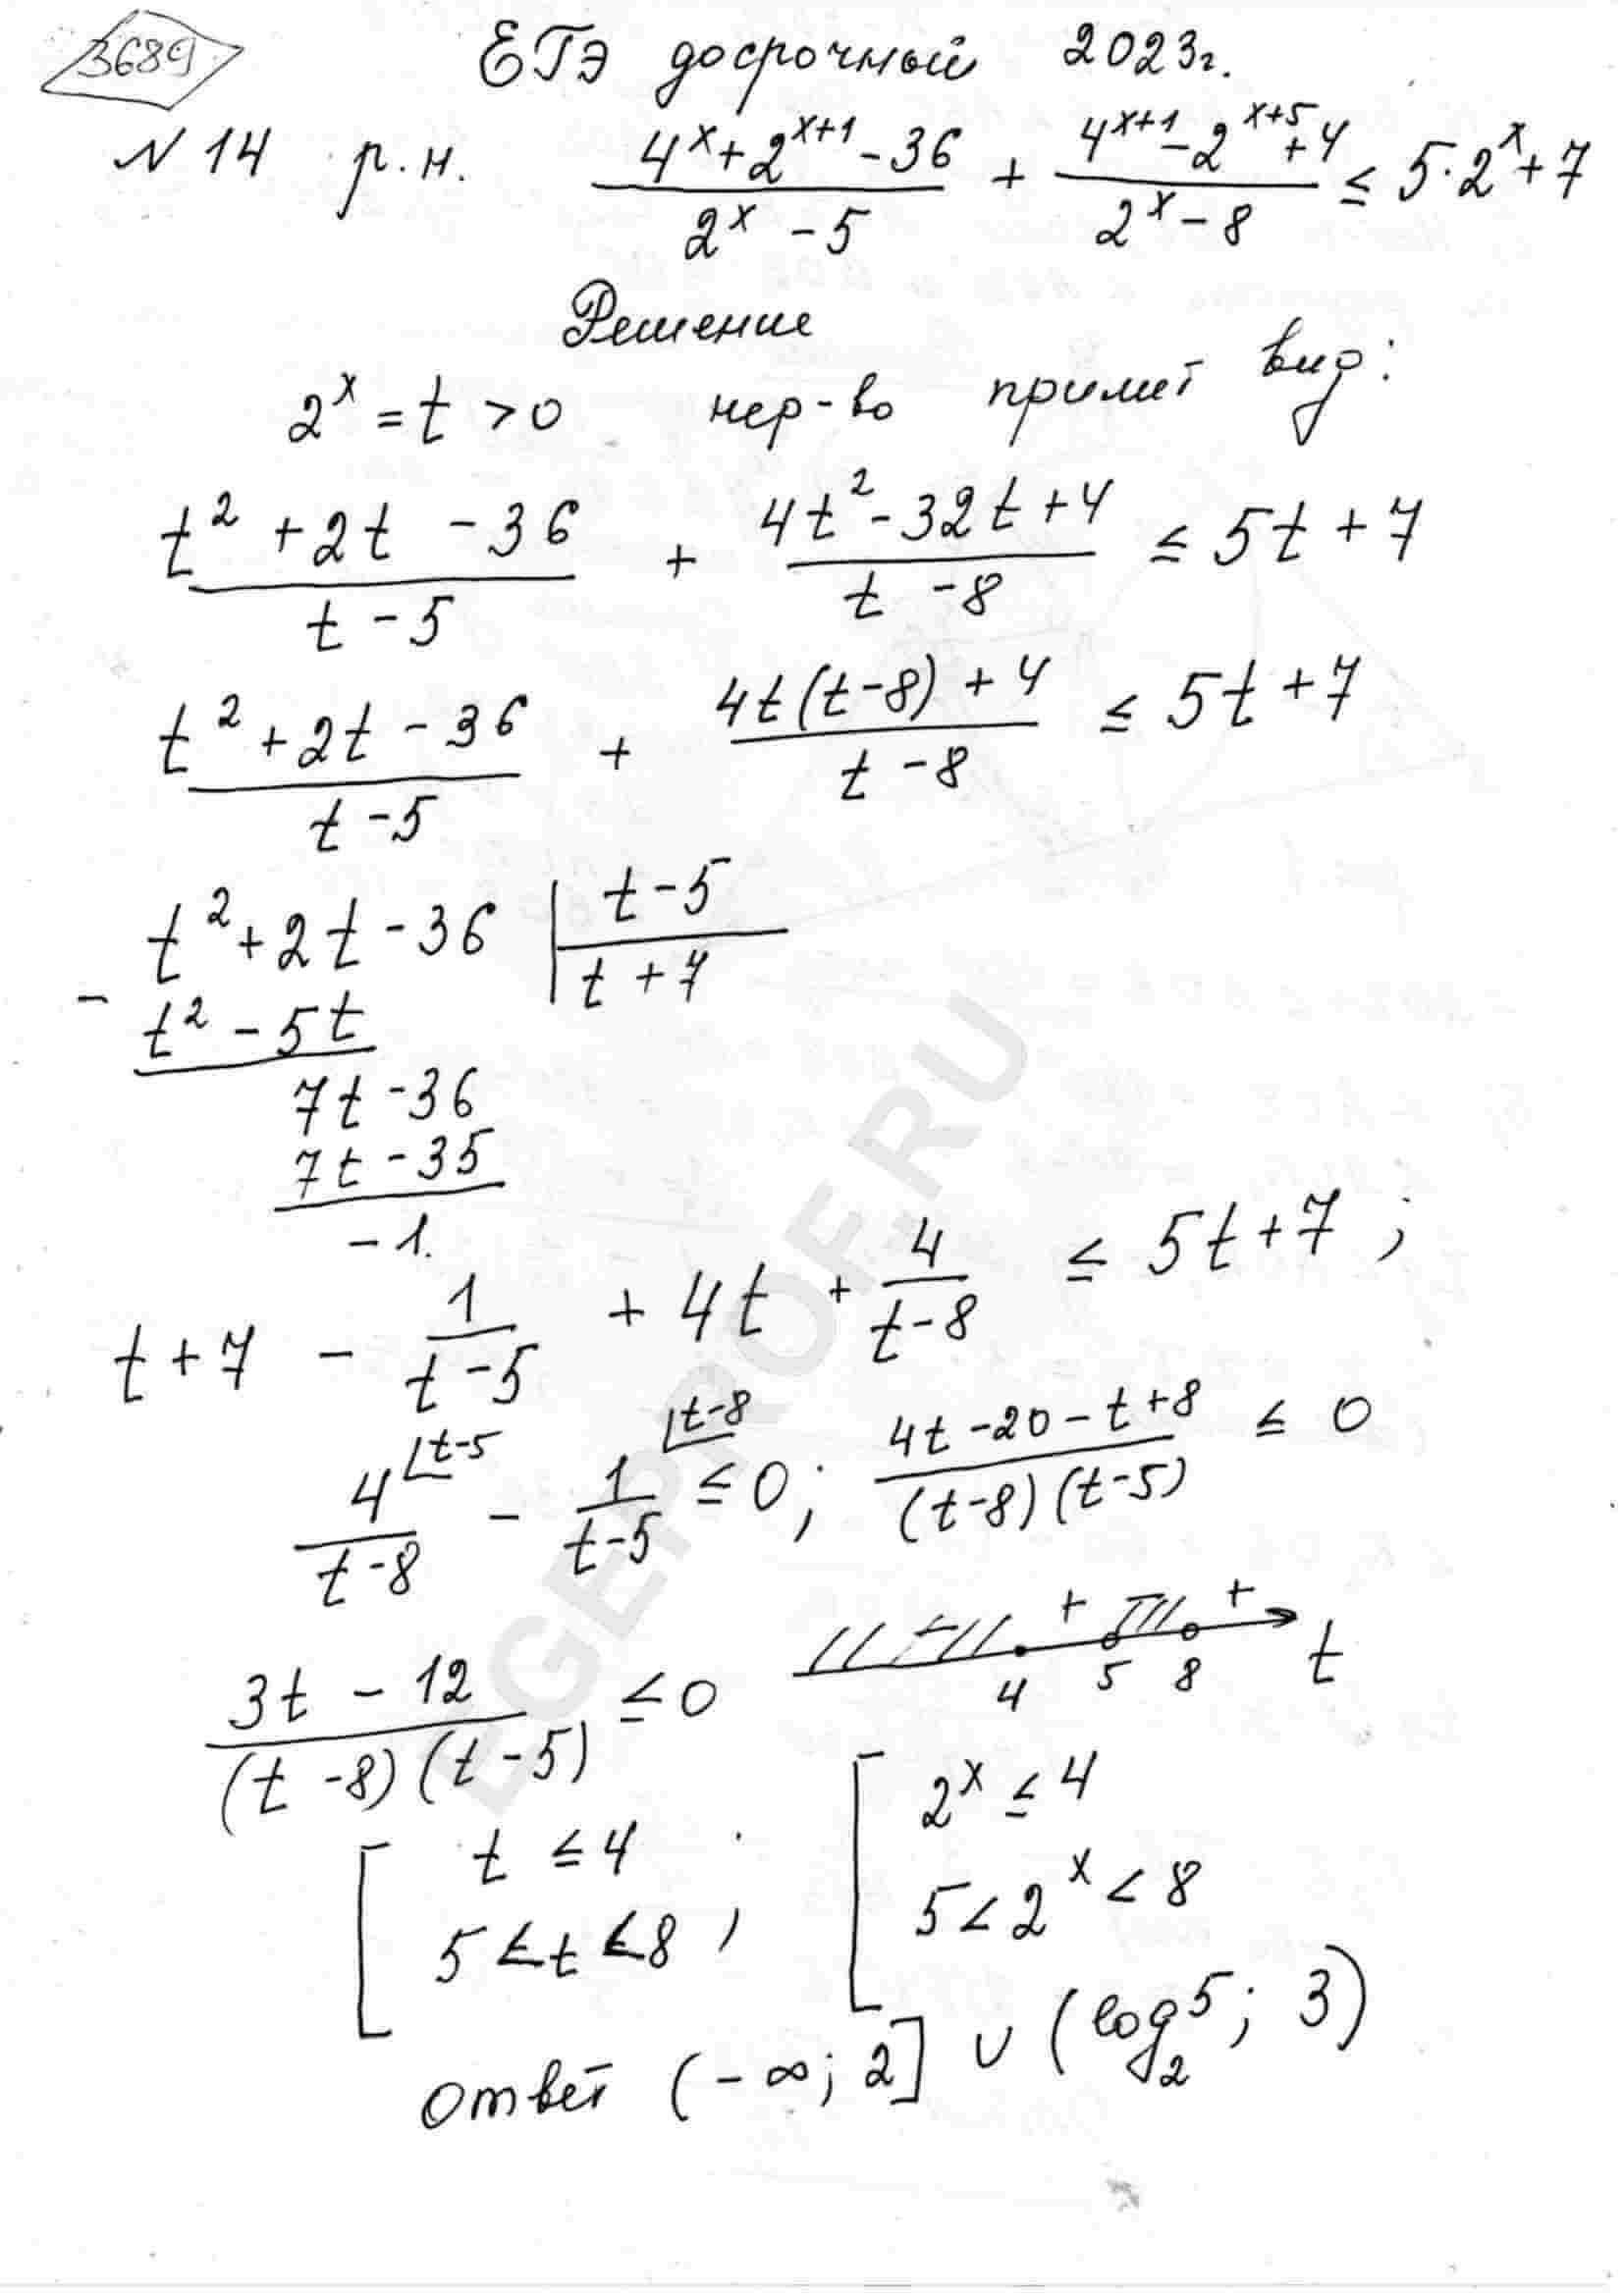 3689
ЕГЭ досрочный 2023г.
N 14 р.н. (4^x + 2^(x+1) - 36)/(2^x - 5) + (4^(x+1) - 2^(x+5) + 4)/(2^x - 8) ≤ 5·2^x + 7
Решение
2^x = t > 0 нер-во примет вид:
(t² + 2t - 36)/(t - 5) + (4t² - 32t + 4)/(t - 8) ≤ 5t + 7
(t² + 2t - 36)/(t - 5) + (4t(t - 8) + 4)/(t - 8) ≤ 5t + 7
- t² + 2t - 36 | t - 5
t² - 5t | t + 7
7t - 36
7t - 35
- 1.
t + 7 - 1/(t - 5) + 4t + 4/(t - 8) ≤ 5t + 7 ;
4/(t - 8) ⌊t-5 - 1/(t - 5) ⌊t-8 ≤ 0; (4t - 20 - t + 8)/((t - 8)(t - 5)) ≤ 0
(3t - 12)/((t - 8)(t - 5)) ≤ 0 - + + 4 5 8 t
[ t ≤ 4 ; [ 2^x ≤ 4
5 < t < 8 , 5 < 2^x < 8
ответ (-∞; 2] ∪ (log₂5; 3)
EGEPROF.RU